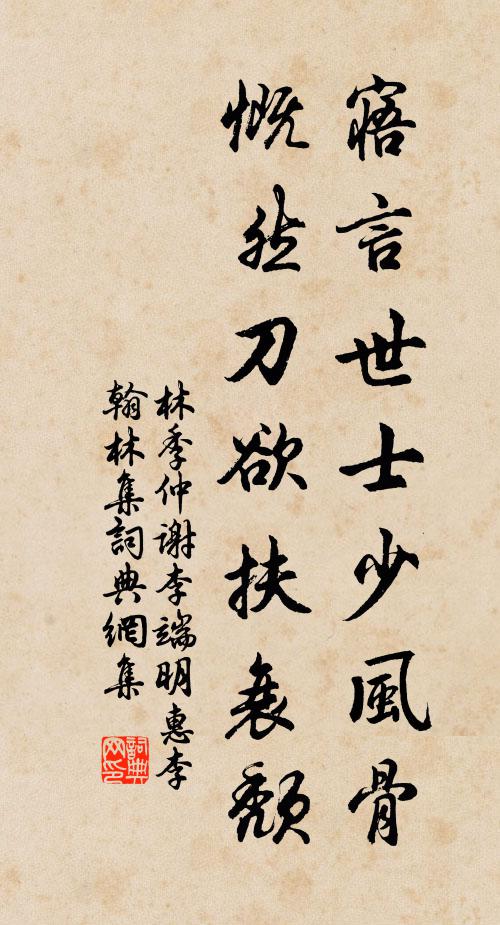 寤言世士少風骨
慨然刀欲扶衰頹
林季仲謝李端明惠李
翰林集詞典網集
詞典
网印